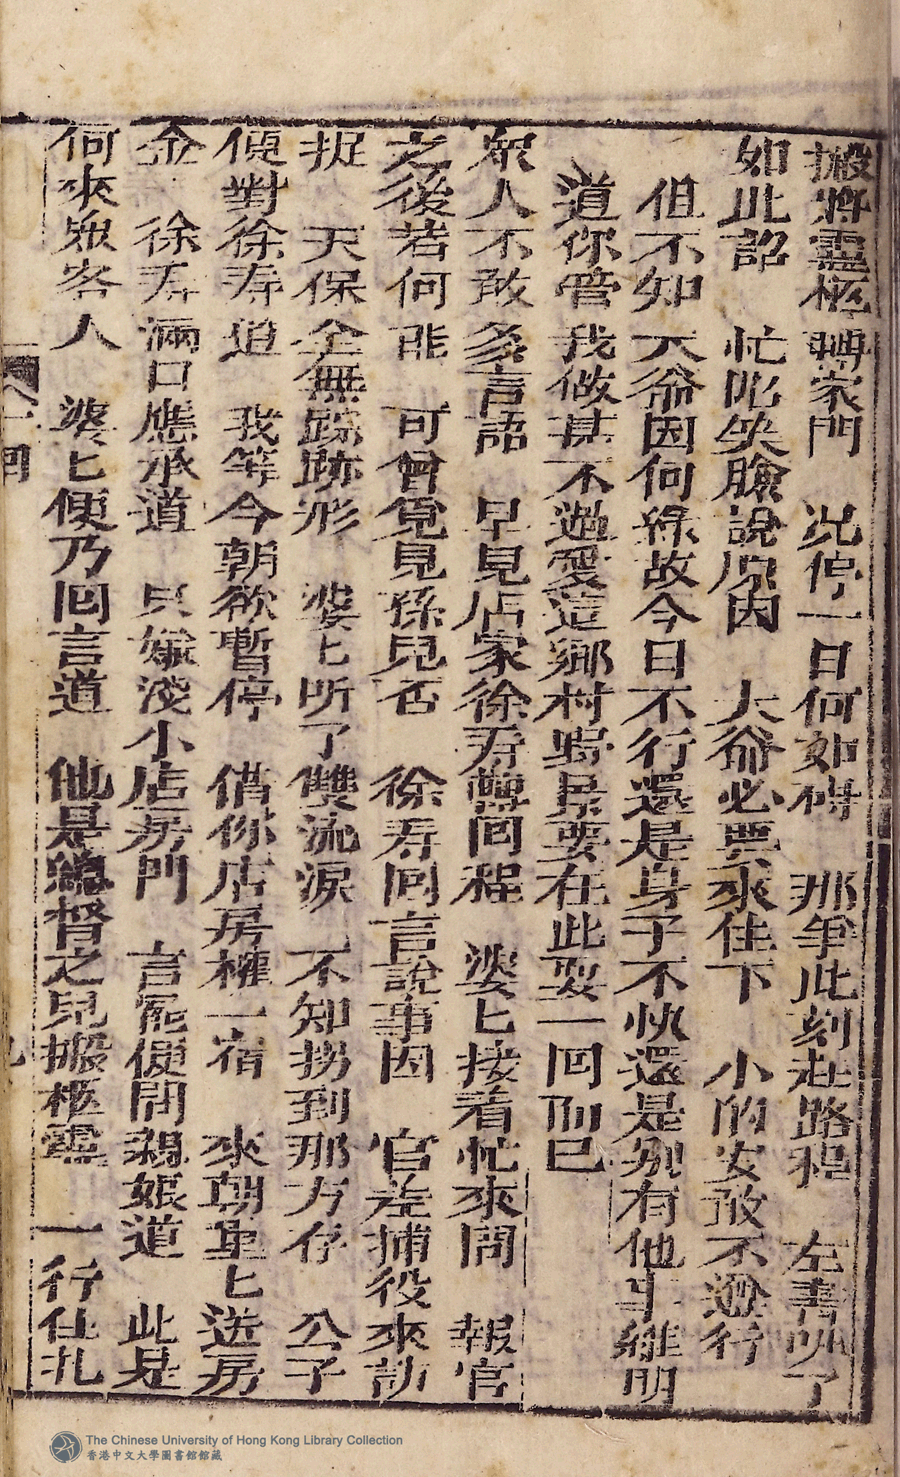 搬將靈柩轉家門　况停一日何如碍　那爭此刻赶路程　左書听了
如此諂　忙陀笑臉說原因　大爺必要來住下　小的安敢不遵行
但不知大爺因何綠故今日不行還是身子不快還是别有他事維明
道你管我做甚不過愛這鄉村塲景要在此耍一回而已
衆人不敢多言語　早見店家徐寿轉回程　婆匕接着忙來問　報官
之後若何能　可曾覔見孫兒否　徐寿回言說事因　官差捕役來訪
捉　天保全無踪跡形　婆匕听了雙流淚　不知拐到那方存　公子
便對徐寿道　我等今朝欲暫停　借你店房權一宿　來朝重匕送房
金　徐寿滿口應承道　只嫌淺小店房門　言罷便問親娘道　此是
何來衆客人　婆匕便乃回言道　他是總督之兒搬柩靈　一行仕扎
回
九
The Chinese University of Hong Kong Library Collection
香港中文大學圖書館館藏